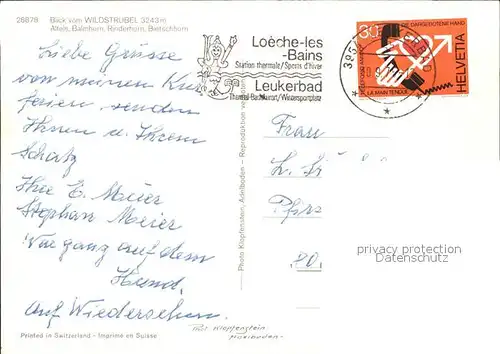 26878 Blick vom WILDSTRUBEL 3243 m
Altels, Balmhorn, Rinderhorn, Bietschhorn
Liebe Grüsse
von meinen Kur
ferien senden
Ihnen u. Ihrem
Schatz
Ihre E. Meier
Stephan Meier
auf dem
Hund.
Auf Wiedersehen.
Printed in Switzerland - Imprimé en Suisse
Photo Klopfenstein, Adelboden - Reproduktion verboten
Loèche-les
-Bains
Station thermale / Sports d'hiver
Leukerbad
Thermal-Badekurort / Wintersportplatz
30
DIE DARGEBOTENE HAND
LA MAIN TENDUE
HELVETIA
Frau
privacy protection
Datenschutz
Klopfenstein